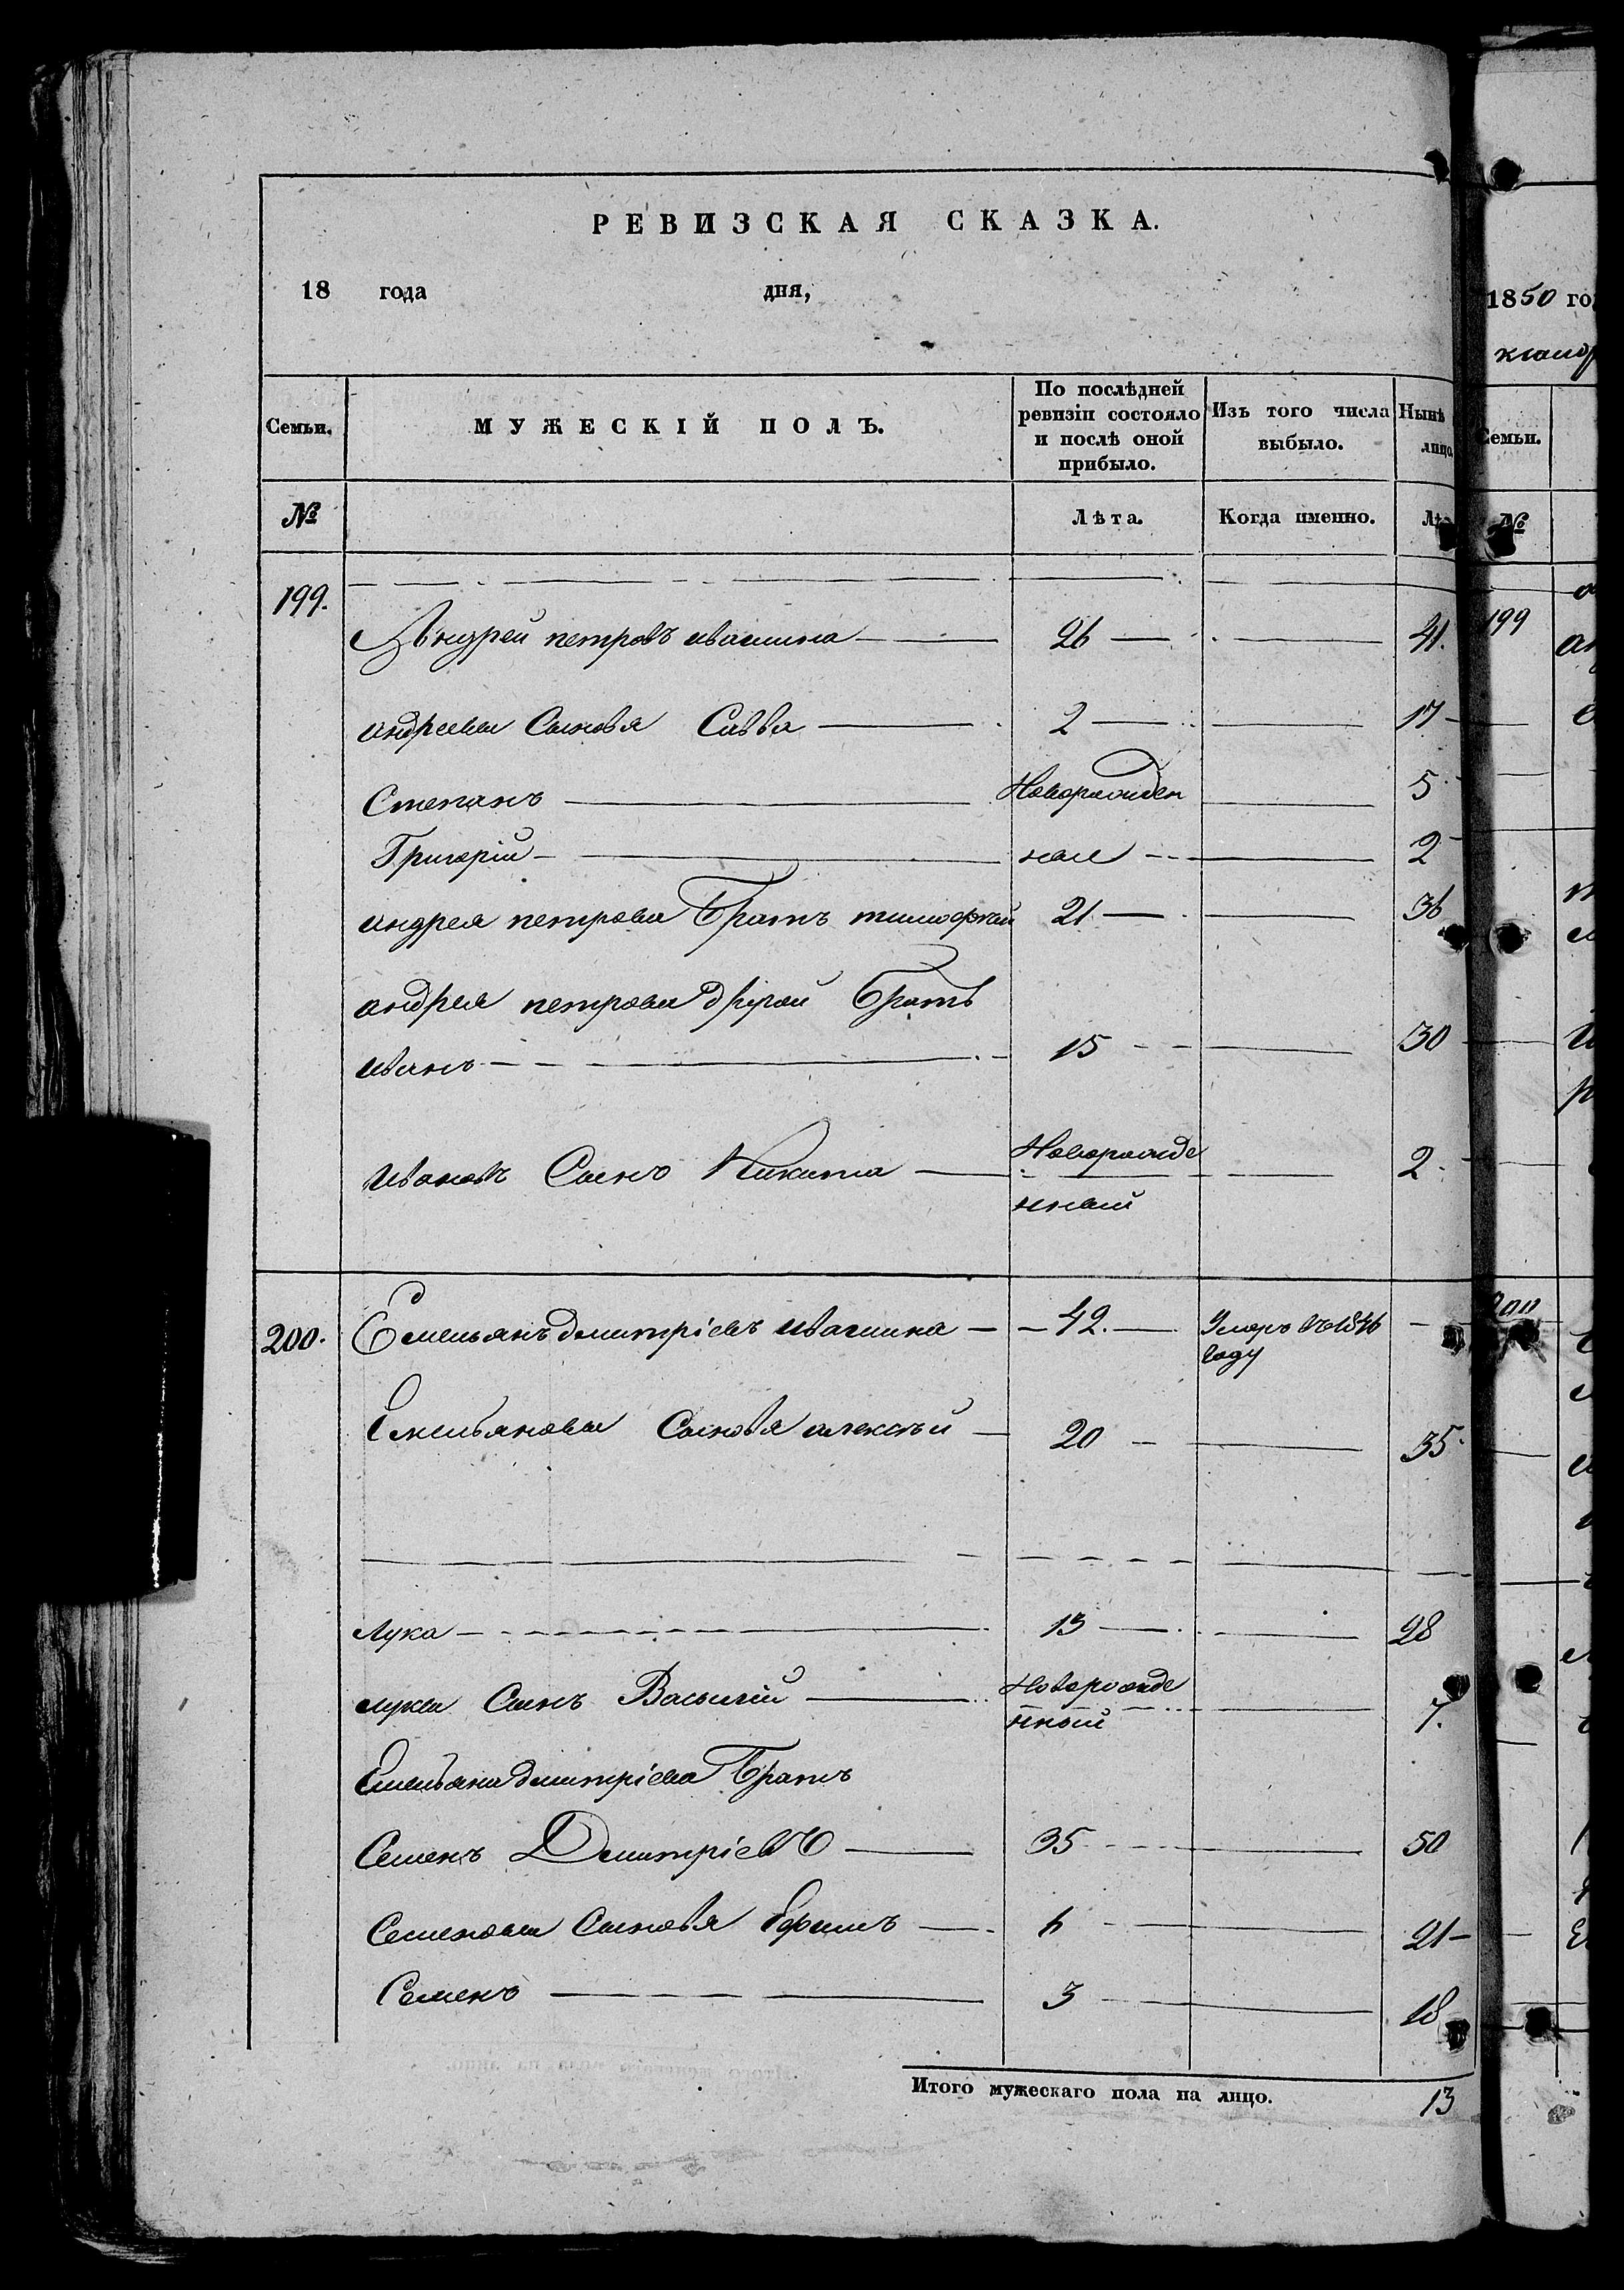 РЕВИЗСКАЯ СКАЗКА.
18 года дня,
Семьи. МУЖЕСКІЙ ПОЛЪ. По послѣдней ревизіи состояло и послѣ оной прибыло. Изъ того числа выбыло. Нынѣ лицо.
№ Лѣта. Когда именно.
199.
Андрей петровъ ивашина 26 41.
андреевы Сыновя Савва 2 17
Степанъ Новорожден 5
Григорій ные 2
андрея петрова Братъ тимофей 21 36
андрея петрова другой Братъ
иванъ 15 30
ивановъ Сынъ Никита Новорожде 2
нный
200. Емельянъ дмитріевъ ивашина 42. Умеръ въ 1846
году
Емельяновы Сыновя алексѣй 20 35
лука 13 28
луки Сынъ Василій Новорожде 7.
нный
Емельяна дмитріева Братъ
Семенъ Дмитріевъ 35 50
Семеновы Сыновя Ефимъ 6 21
Семенъ 3 18
Итого мужескаго пола на лицо. 13
1850 го
Семьи.
№
199
200